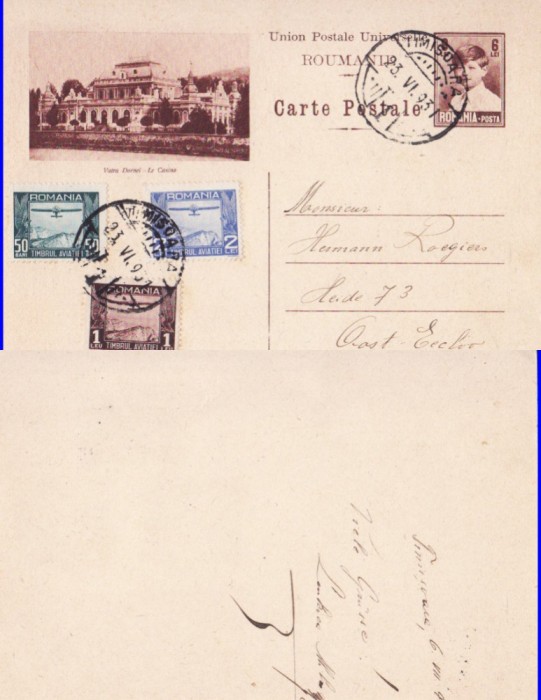 Union Postale Universelle
ROUMANIE
Carte Postale
6
LEI
ROMANIA-POSTA
TIMISOARA
23. VI. 931
Vatra Dornei - Le Casino
ROMANIA
50
BANI
50
BANI
TIMBRUL AVIATIEI
ROMANIA
2
LEI
TIMBRUL AVIATIEI
TIMISOARA
23. VI. 93
ROMANIA
1
LEU
1
LEU
TIMBRUL AVIATIEI
Monsieur:
Hermann Roegiers
Heide 73
Oost-Eecloo
Timisoara, 6